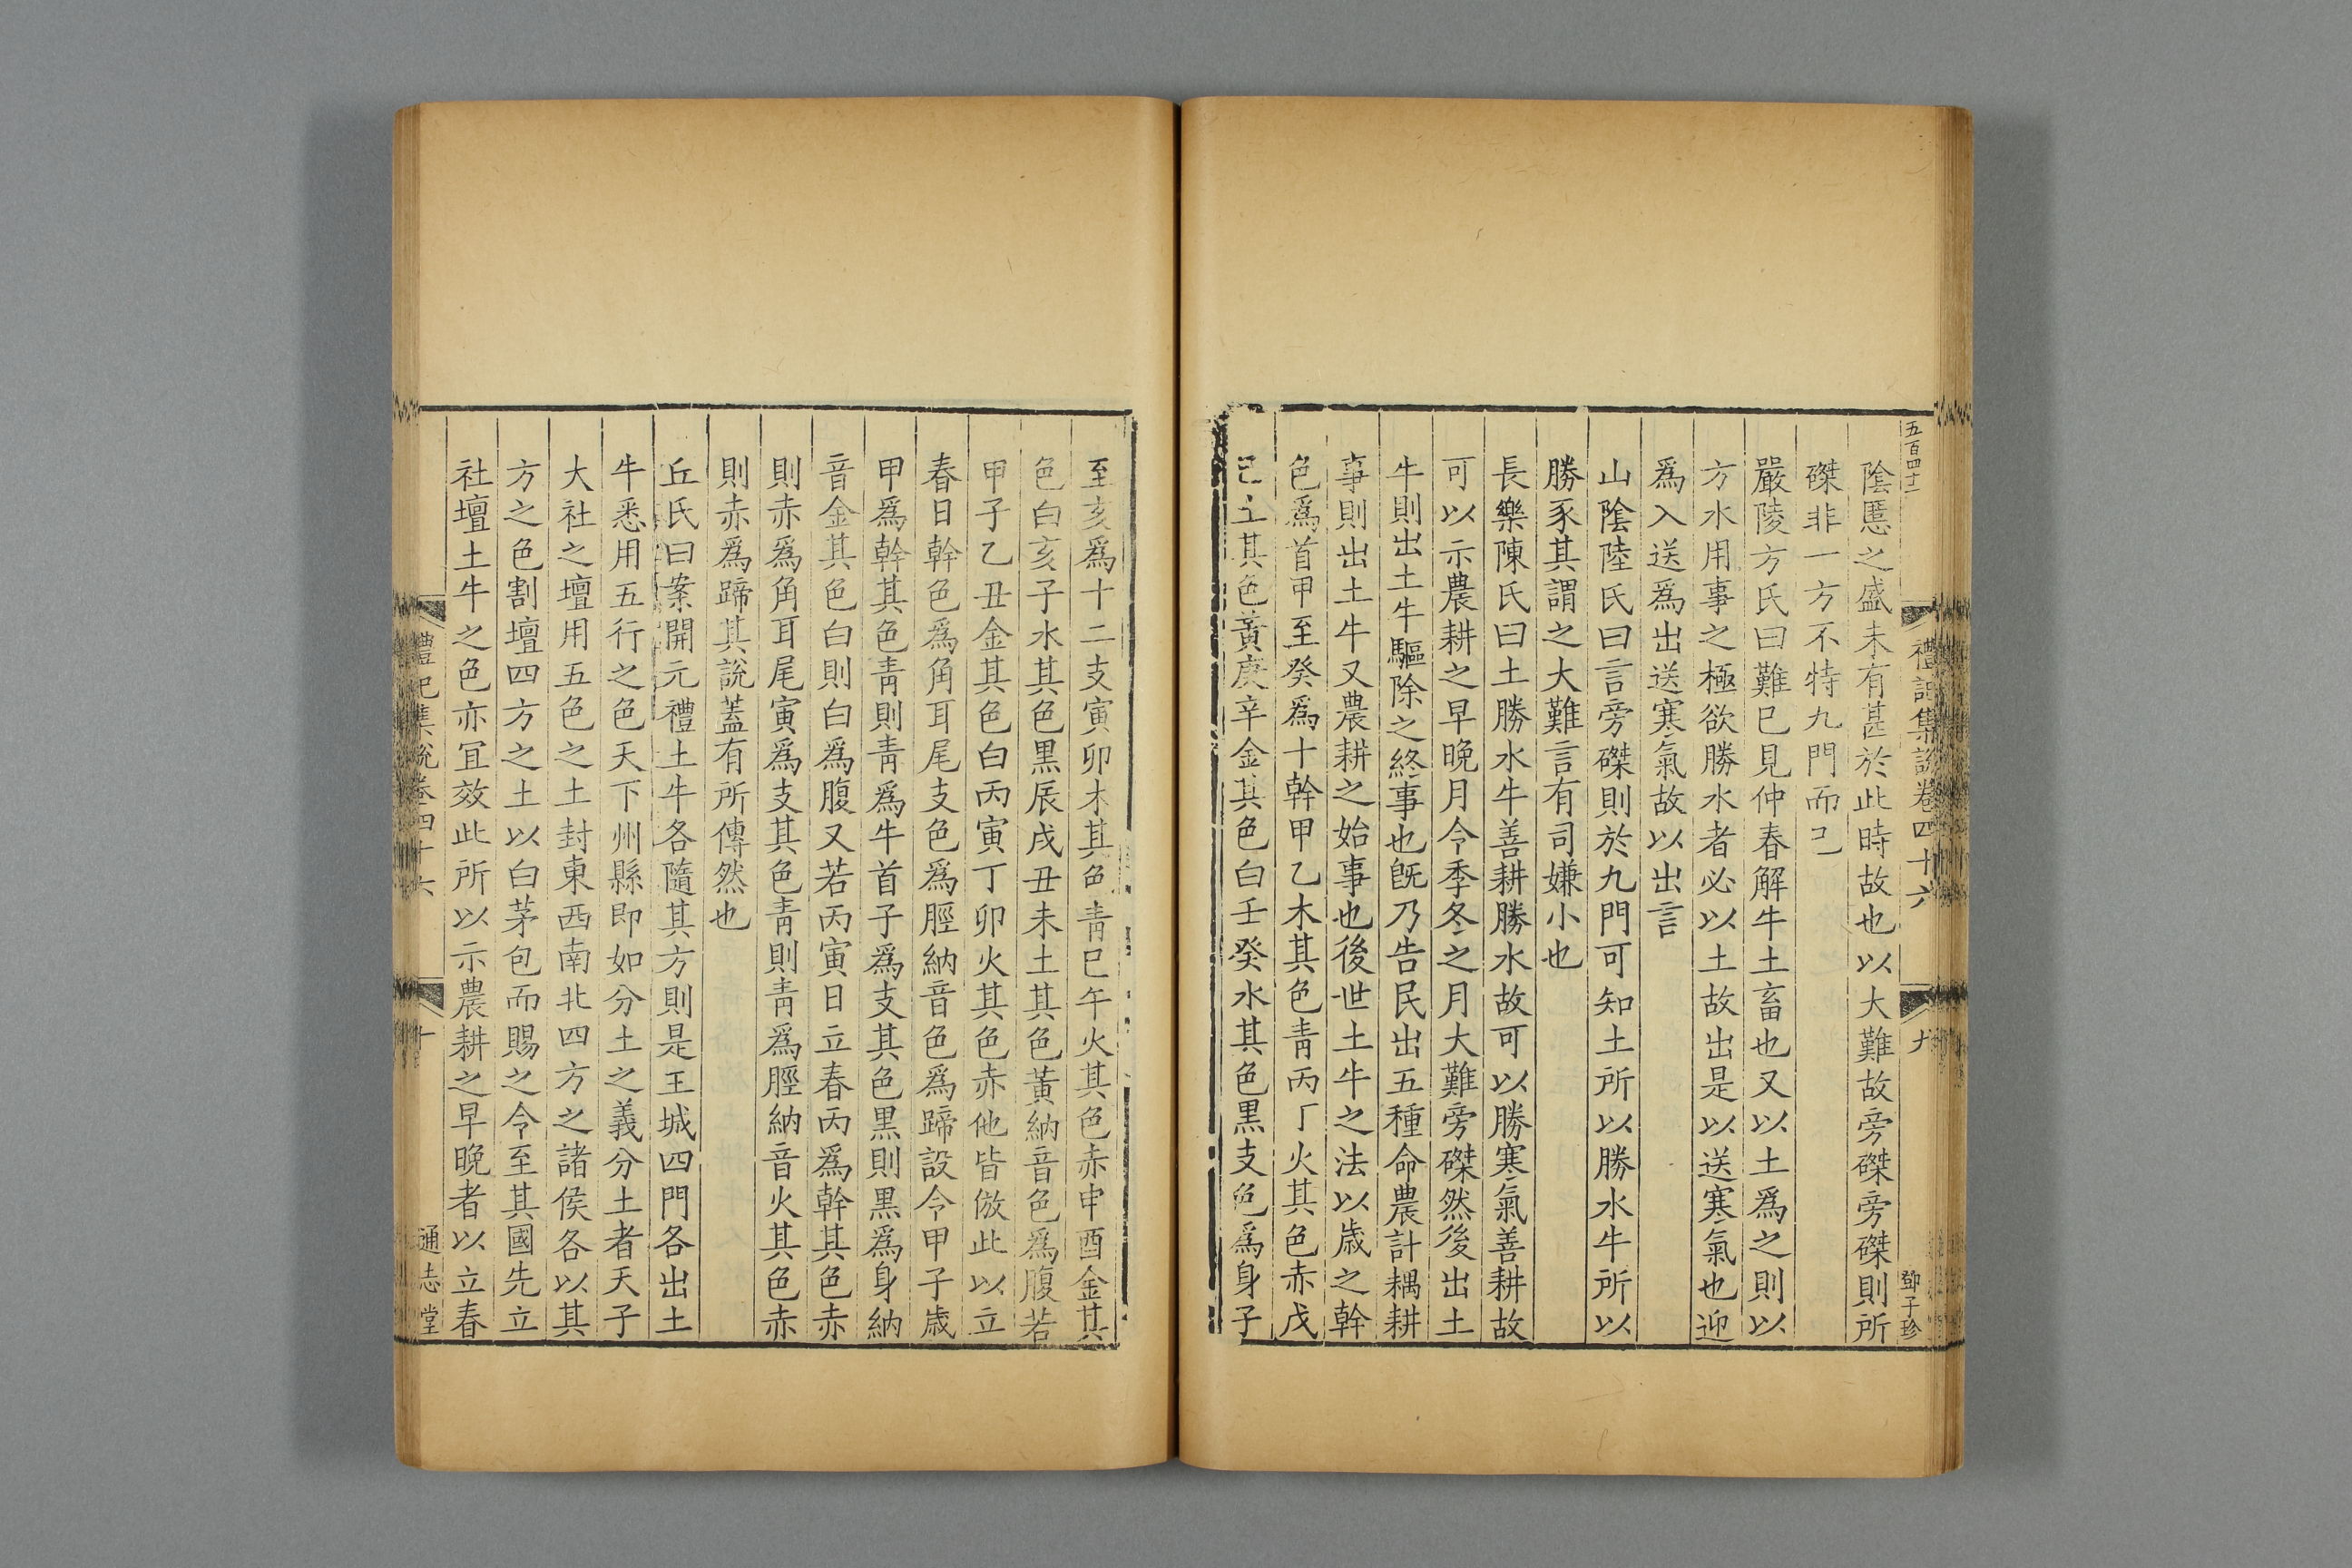 五百四十二
禮記集說卷四十六
九
鄧子珍
陰慝之盛未有甚於此時故也以大難故旁磔旁磔則所
磔非一方不特九門而已
嚴陵方氏曰難已見仲春解牛土畜也又以土爲之則以
方水用事之極欲勝水者必以土故出是以送寒氣也迎
爲入送爲出送寒氣故以出言
山陰陸氏曰言旁磔則於九門可知土所以勝水牛所以
勝豕其謂之大難言有司嫌小也
長樂陳氏曰土勝水牛善耕勝水故可以勝寒氣善耕故
可以示農耕之早晚月令季冬之月大難旁磔然後出土
牛則出土牛驅除之終事也旣乃告民出五種命農計耦耕
事則出土牛又農耕之始事也後世土牛之法以歲之幹
色爲首甲至癸爲十幹甲乙木其色靑丙丁火其色赤戊
己土其色黃庚辛金其色白壬癸水其色黑支色爲身子
至亥爲十二支寅卯木其色靑巳午火其色赤申酉金其
色白亥子水其色黑辰戌丑未土其色黃納音色爲腹若
甲子乙丑金其色白丙寅丁卯火其色赤他皆倣此以立
春日幹色爲角耳尾支色爲脛納音色爲蹄設令甲子歲
甲爲幹其色靑則靑爲牛首子爲支其色黑則黑爲身納
音金其色白則白爲腹又若丙寅日立春丙爲幹其色赤
則赤爲角耳尾寅爲支其色靑則靑爲脛納音火其色赤
則赤爲蹄其說蓋有所傳然也
丘氏曰案開元禮土牛各隨其方則是王城四門各出土
牛悉用五行之色天下州縣即如分土之義分土者天子
大社之壇用五色之土封東西南北四方之諸侯各以其
方之色割壇四方之土以白茅包而賜之令至其國先立
社壇土牛之色亦宜效此所以示農耕之早晚者以立春
禮記集說卷四十六
十
通志堂